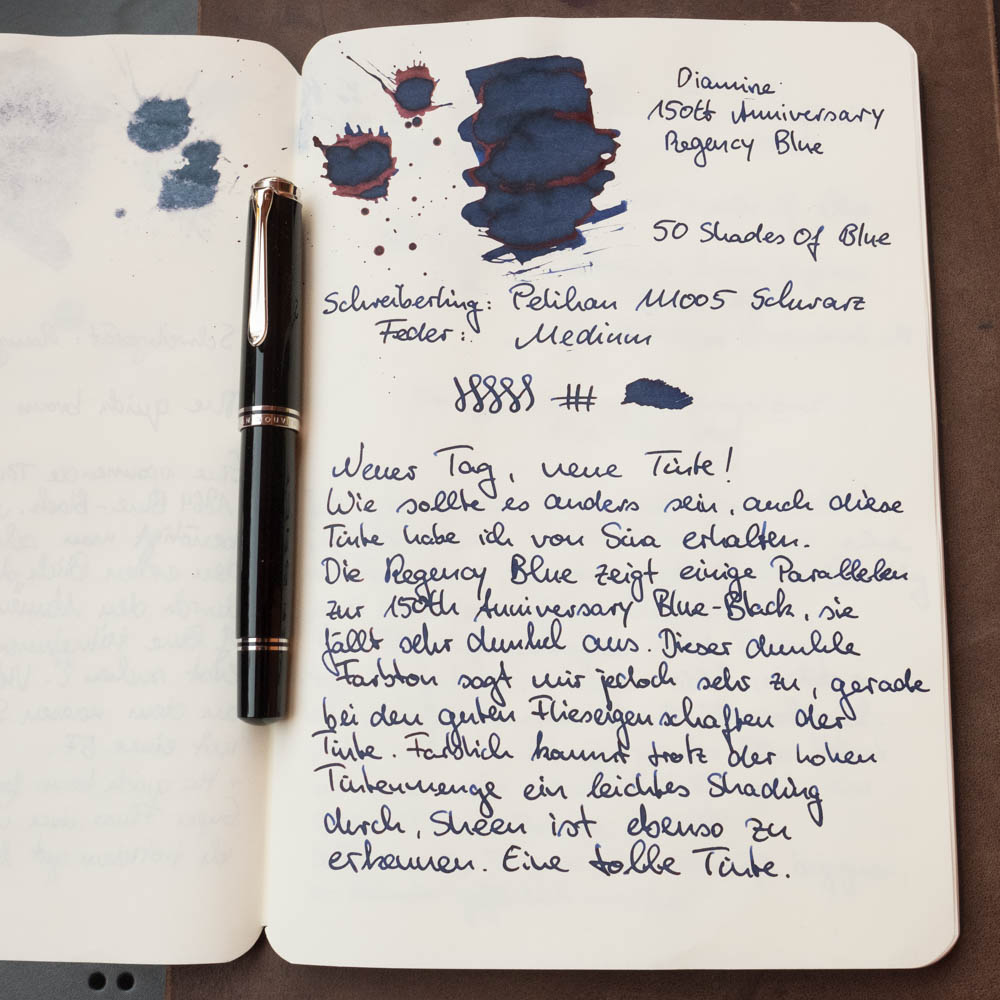 Diamine
150th Anniversary
Regency Blue
50 Shades Of Blue
Schreiberling: Pelikan M1005 Schwarz
Feder: Medium
Neuer Tag, neue Tinte!
Wie sollte es anders sein, auch diese
Tinte habe ich von Sira erhalten.
Die Regency Blue zeigt einige Parallelen
zur 150th Anniversary Blue-Black, sie
fällt sehr dunkel aus. Dieser dunkle
Farbton sagt mir jedoch sehr zu, gerade
bei den guten Flieseigenschaften der
Tinte. Farblich kommt trotz der hohen
Tintenmenge ein leichtes Shading
durch, Sheen ist ebenso zu
erkennen. Eine tolle Tinte.